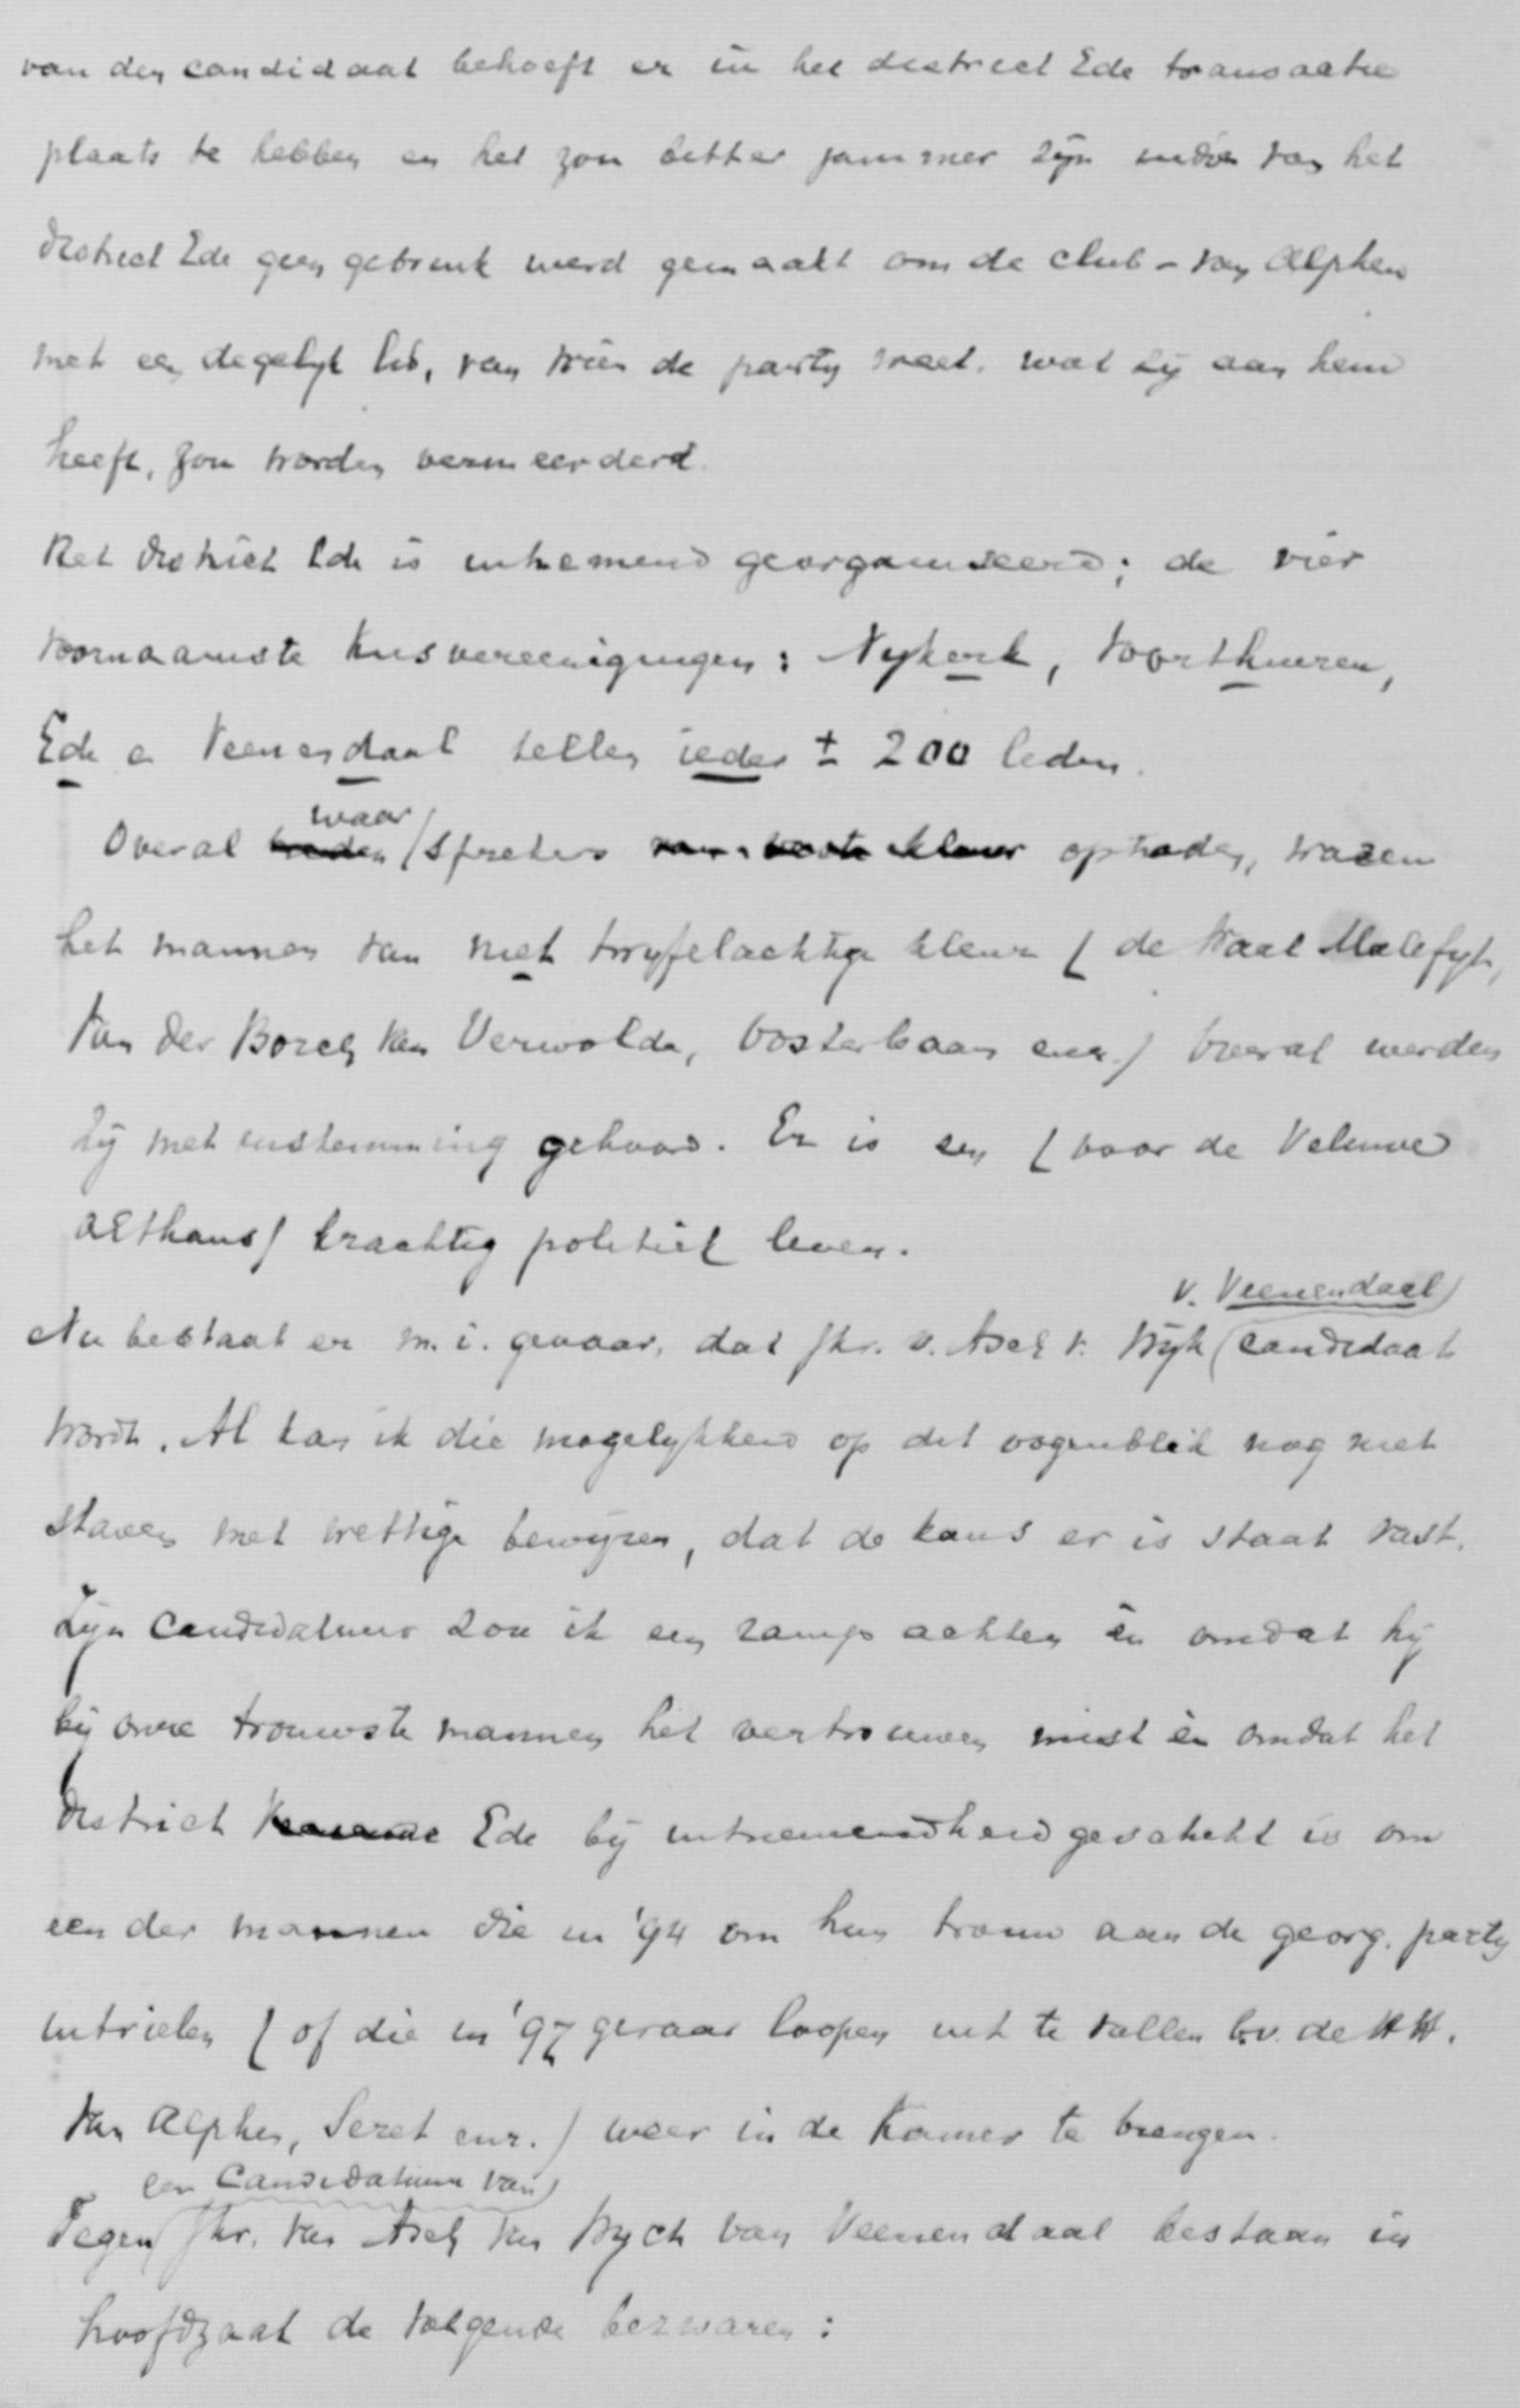 van den candidaat behoeft er in het district Ede transactie
plaats te hebben en het zou bitter jammer zijn indien van het
district Ede geen gebruik werd gemaakt om de club - van Alphen
met een degelijk lid, van wien de partij weet wat zij aan hem
heeft, zou worden vermeerderd.
Het district Ede is uitnemend georganiseerd; de vier
voornaamste kiesvereenigingen: Nijkerk, Voorthuizen,
Ede en Veenendaal tellen ieder ± 200 leden.
waar
Overal sprekers optraden, waren
het mannen van niet twijfelachtige kleur (de Waal Malefijt,
van der Borch van Verwolde, Oosterbaan enz.) Overal werden
zij met instemming gehoord. Er is een (voor de Veluwe
althans) krachtig politiek leven.
v. Veenendaal
Nu bestaat er m.i. gevaar, dat Jhr. v. Asch v. Wijk candidaat
wordt. Al kan ik die mogelijkheid op dit oogenblik nog niet
staven met wettige bewijzen, dat de kans er is staat vast.
Zijn candidatuur zou ik een ramp achten èn omdat hij
bij onze trouwste mannen het vertrouwen mist èn omdat het
district Ede bij uitnemendheid geschikt is om
een der mannen die in '94 om hun trouw aan de georg. partij
uitvielen (of die in '97 gevaar loopen uit te vallen b.v. de HH.
van Alphen, Seret enz.) weer in de Kamer te brengen.
een Candidatuur van
Tegen Jhr. van Asch van Wijck van Veenendaal bestaan in
hoofdzaak de volgende bezwaren: